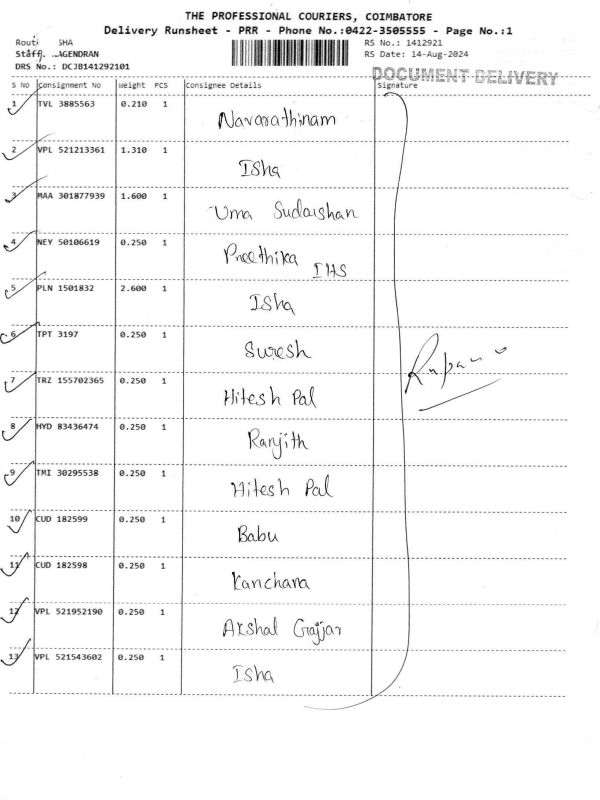 THE PROFESSIONAL COURIERS, COIMBATORE
Delivery Runsheet - PRR - Phone No.:0422-3505555 - Page No.:1
SHA RS No.: 1412921
AGENDRAN RS Date: 14-Aug-2024
DRS No.: DCJB141292101
DOCUMENT DELIVERY
S No Consignment No Weight PCS Consignee Details Signature
1 TVL 3885563 0.210 1
Navarathinam
2 VPL 521213361 1.310 1
Isha
3 MAA 301877939 1.600 1
Uma Sudarshan
4 NEY 50106619 0.250 1
Preethika IHS
5 PLN 1501832 2.600 1
Isha
6 TPT 3197 0.250 1
Suresh
7 TRZ 155702365 0.250 1
Hitesh Pal
8 HYD 83436474 0.250 1
Ranjith
9 TMI 30295538 0.250 1
Hitesh Pal
10 CUD 182599 0.250 1
Babu
11 CUD 182598 0.250 1
Kanchana
12 VPL 521952190 0.250 1
Akshal Gajjar
13 VPL 521543602 0.250 1
Isha